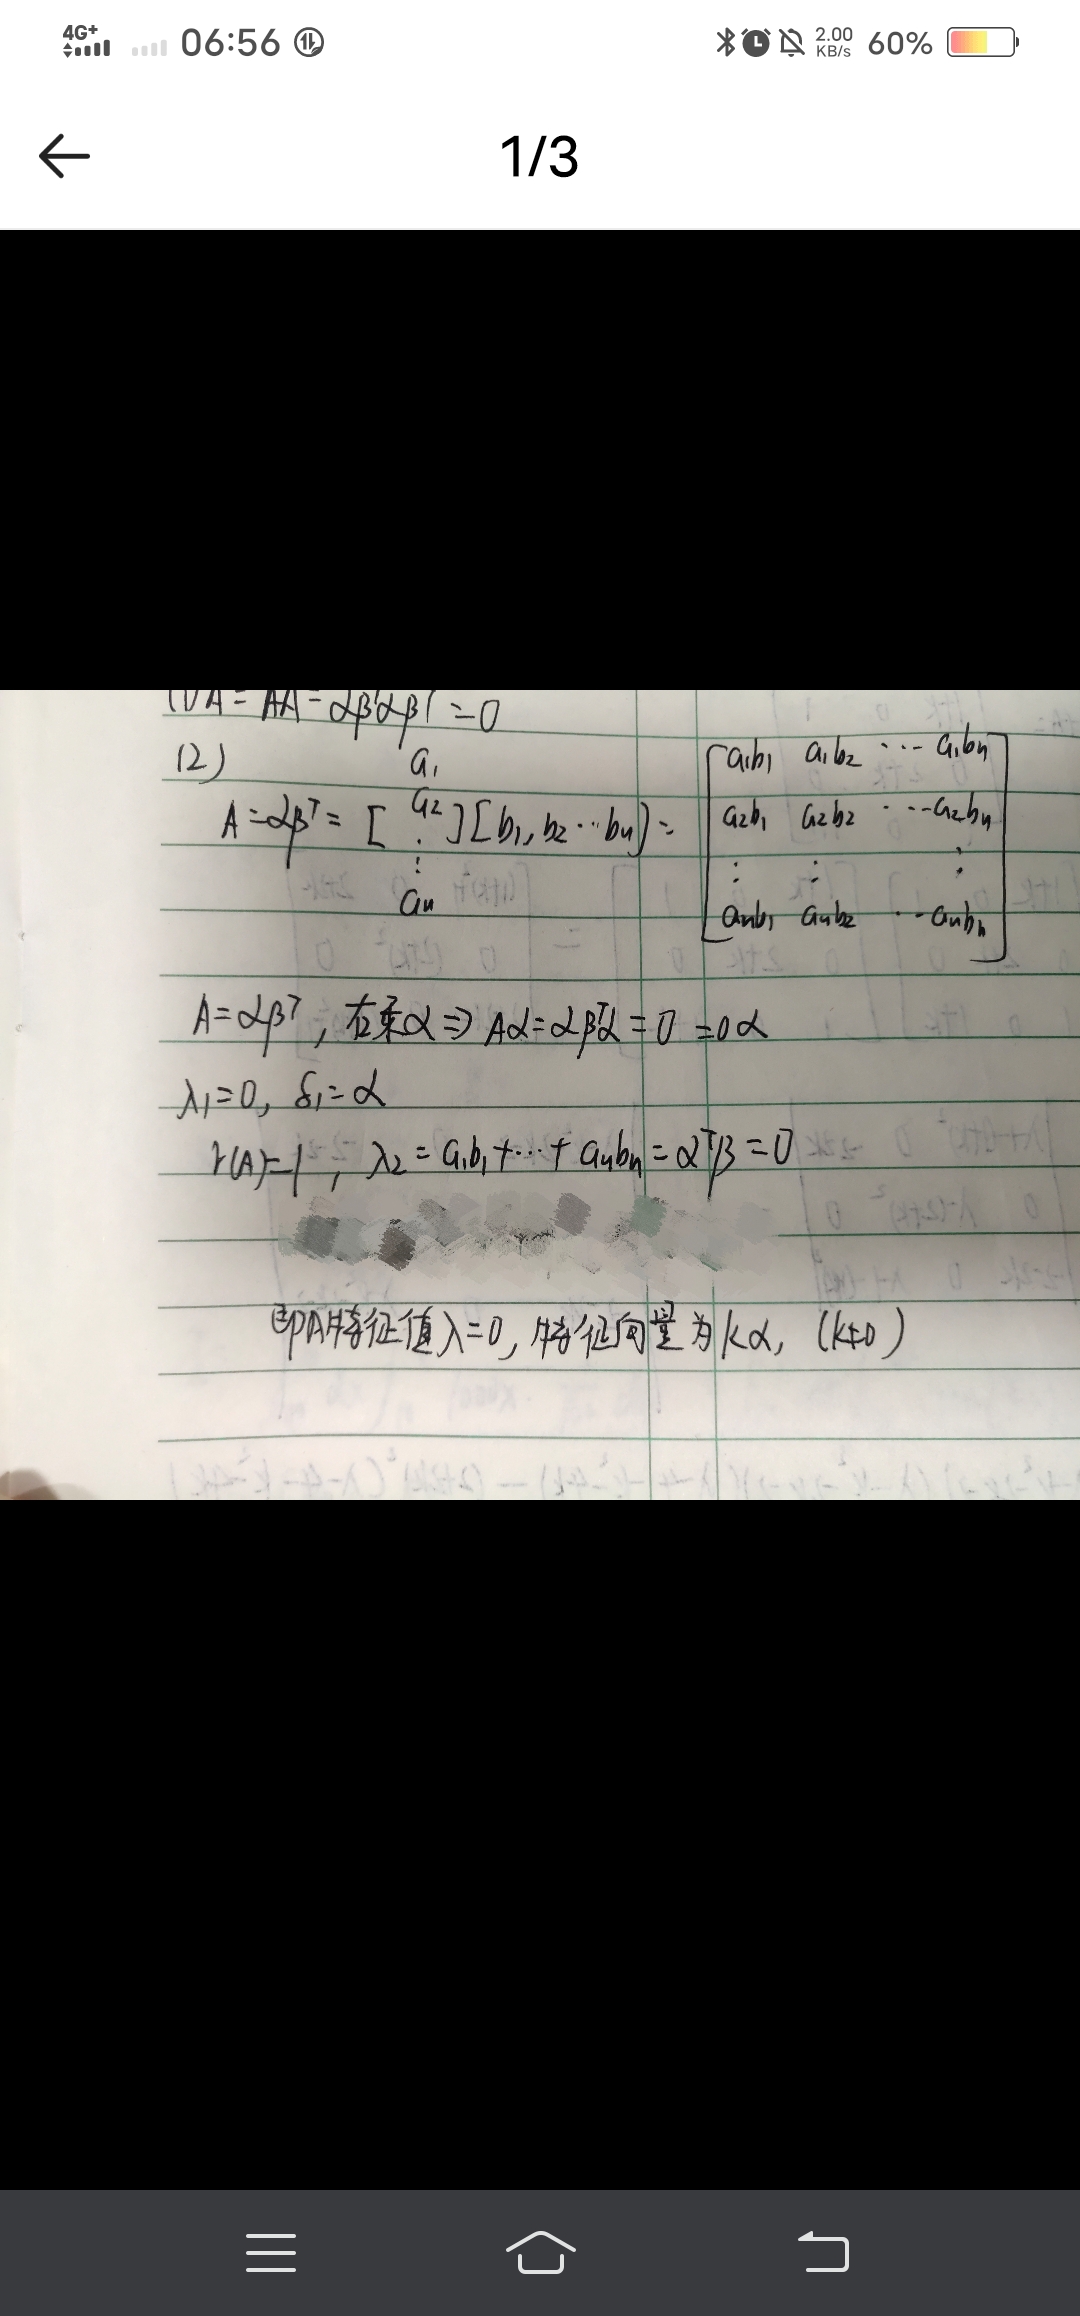 4G+ 06:56 2.00 KB/s 60%
1/3
(1) A² = AA = αβᵀαβᵀ = 0
(2)
A = αβᵀ = [a₁ a₂ ⋮ aₙ][b₁, b₂ ⋯ bₙ] = [a₁b₁ a₁b₂ ⋯ a₁bₙ
a₂b₁ a₂b₂ ⋯ a₂bₙ
⋮ ⋮ ⋮
aₙb₁ aₙb₂ ⋯ aₙbₙ]
A = αβᵀ, 右乘α ⇒ Aα = αβᵀα = 0 = 0α
λ₁ = 0, δ₁ = α
r(A) = 1, λ₂ = a₁b₁ + ⋯ + aₙbₙ = αᵀβ = 0
即A特征值λ=0, 特征向量为kα, (k≠0)